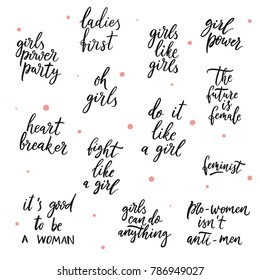 girls
power
party
ladies
first
girls
like
girls
girl
power
oh
girls
the
future
is
female
heart
breaker
do it
like
a girl
fight
like
a girl
feminist
it's good
to be
A WOMAN
girls
can do
anything
pro-women
isn't
anti-men
shutterstock.com · 786949027